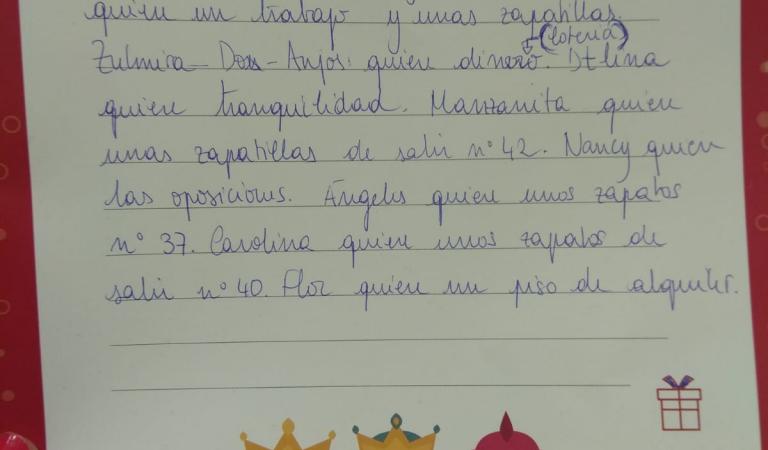 quiere un trabajo y unas zapatillas.
(lotería)
Zulmira - Dos - Anjos: quiere dinero. Idelina
quiere tranquilidad. Manzanita quiere
unas zapatillas de salir nº 42. Nancy quiere
las oposiciones. Ángeles quiere unos zapatos
nº 37. Carolina quiere unos zapatos de
salir nº 40. Flor quiere un piso de alquiler.